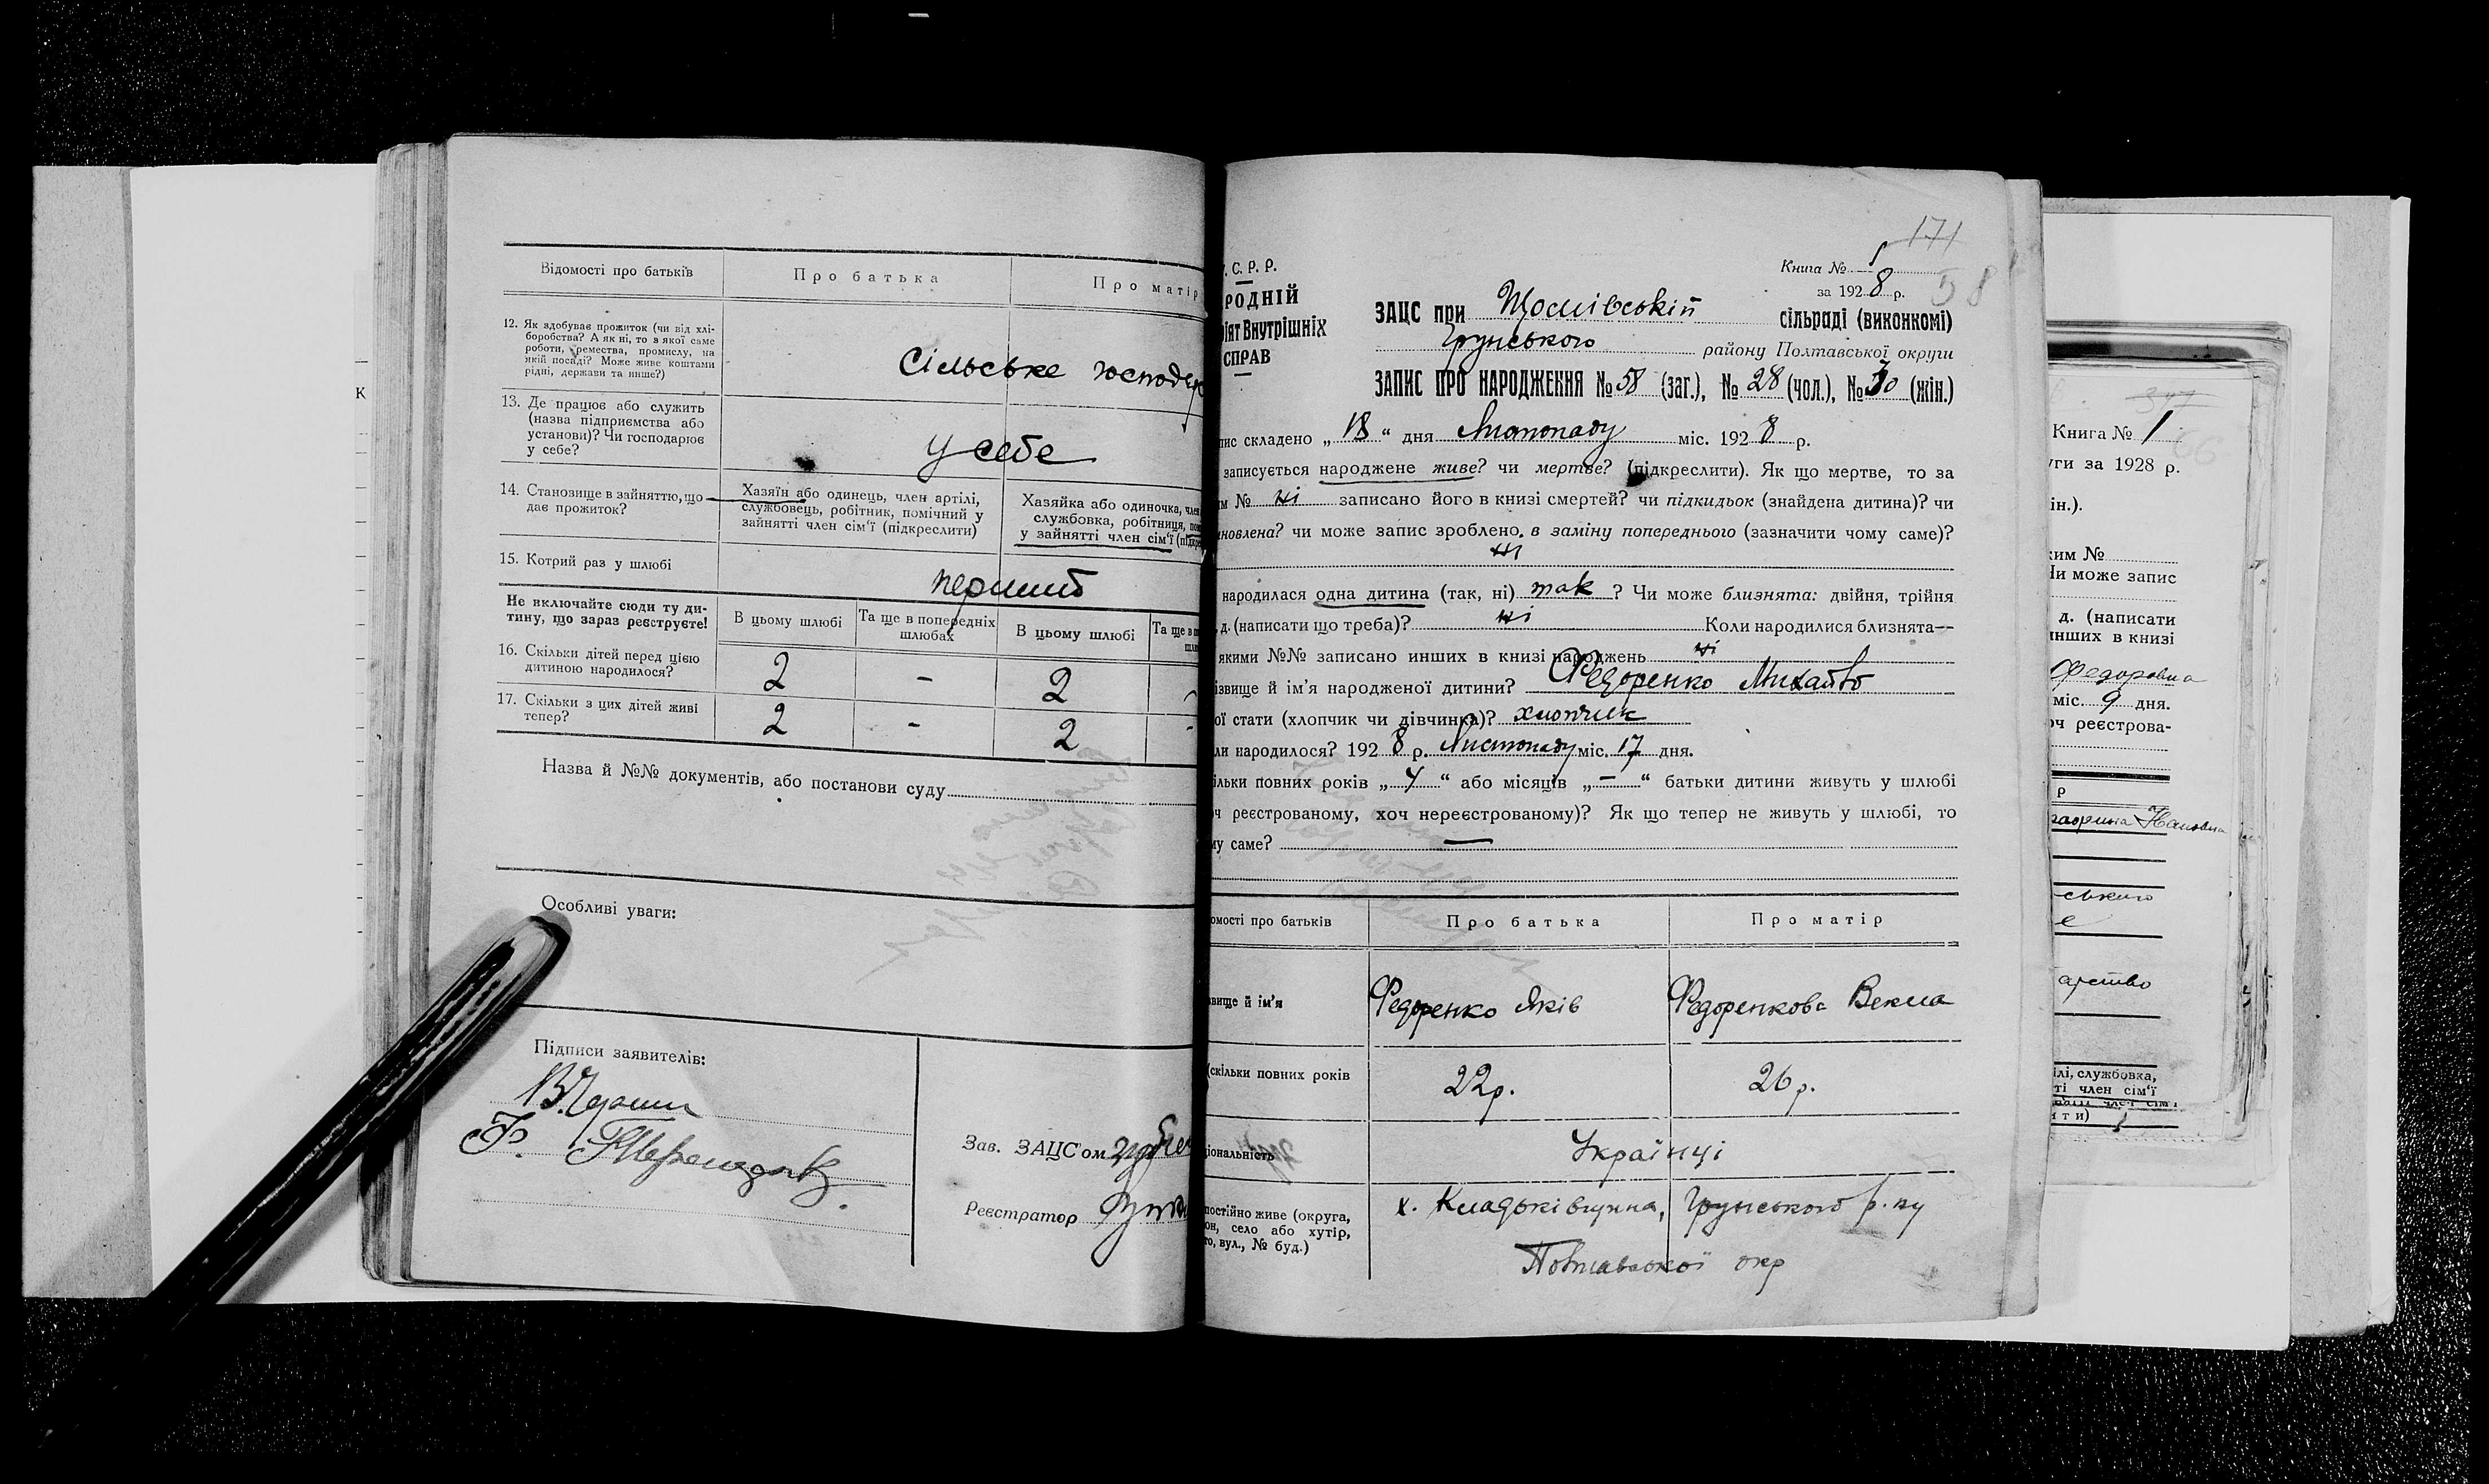 Відомості про батьків
Про батька
Про матір
12. Як здобуває прожиток (чи від хлі-
боробства? А як ні, то з якої саме
роботи, ремества, промислу, на
якій посаді? Може живе коштами
рідні, держави та инше?)
Сільське господар
13. Де працює або служить
(назва підприємства або
установи)? Чи господарює
у себе?
у себе
14. Становище в зайняттю, що
дає прожиток?
Хазяїн або одинець, член артілі,
службовець, робітник, помічний у
зайнятті член сім'ї (підкреслити)
Хазяйка або одиночка, член
службовка, робітниця,
у зайнятті член сім'ї
15. Котрий раз у шлюбі
перший
Не включайте сюди ту ди-
тину, що зараз реєструєте!
В цьому шлюбі
Та ще в попередніх
шлюбах
В цьому шлюбі
Та ще в
16. Скільки дітей перед цією
дитиною народилося?
2 - 2
17. Скільки з цих дітей живі
тепер?
2 - 2 -
Назва й №№ документів, або постанови суду
Особливі уваги:
Підписи заявителів:
Зав. ЗАЦС'ом
Реєстратор
171
58
. С. Р. Р.
РОДНІЙ
ріят Внутрішніх
СПРАВ
Книга № 1
за 1928 р.
ЗАЦС при сільраді (виконкомі)
Грунського району Полтавської округи
ЗАПИС ПРО НАРОДЖЕННЯ № 58 (заг.), № 28 (чол.), № 30 (жін.)
пис складено „18“ дня Листопаду міс. 1928 р.
записується народжене живе? чи мертве? (підкреслити). Як що мертве, то за
им № ні записано його в книзі смертей? чи підкидьок (знайдена дитина)? чи
новлена? чи може запис зроблено в заміну попереднього (зазначити чому саме)?
ні
народилася одна дитина (так, ні) так ? Чи може близнята: двійня, трійня
д. (написати що треба)? ні Коли народилися близнята—
якими №№ записано инших в книзі народжень ні
ізвище й ім'я народженої дитини? Федоренко Михайло
ої стати (хлопчик чи дівчинка)? хлопчик
ли народилося? 1928 р. Листопаду міс. 17 дня.
ільки повних років „4“ або місяців „—“ батьки дитини живуть у шлюбі
ч реєстрованому, хоч нереєстрованому)? Як що тепер не живуть у шлюбі, то
му саме? —
омості про батьків
Про батька
Про матір
звище й ім'я
Федоренко Яків
Федоренкова Векла
(скільки повних років
22 р.
26 р.
ціональність
Українці
постійно живе (округа,
он, село або хутір,
то, вул., № буд.)
х. Кладьківщина, Грунського р-ну
Полтавської окр
Книга № 1
66
уги за 1928 р.
ін.).
ким №
Чи може запис
д. (написати
инших в книзі
Федоровна
міс. 9 дня.
оч реєстрова-
р
ського
е
арство
ілі, службовка,
ті член сім'ї
ити)
К